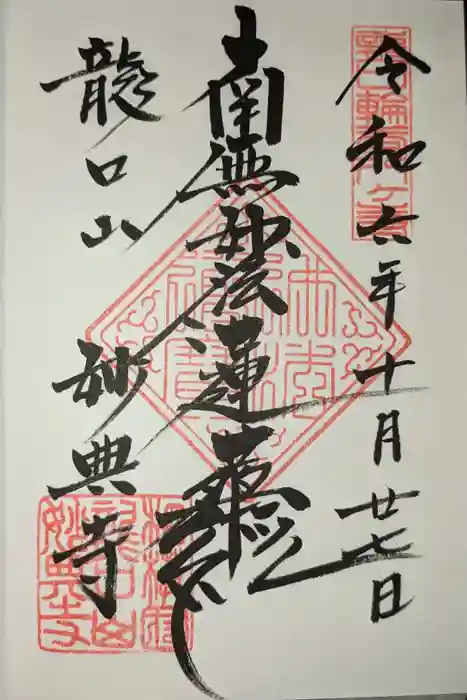 令和六年十月廿七日
南無妙法蓮華経
龍口山
妙典寺